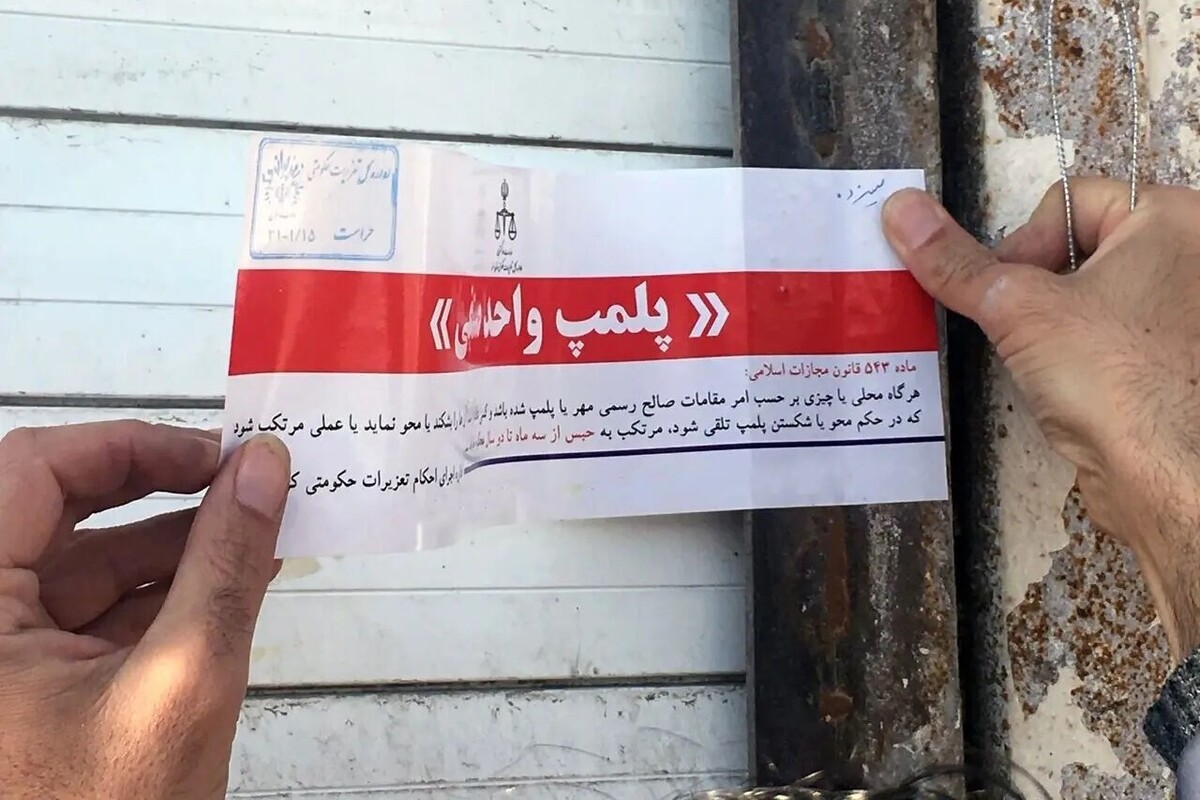 حراست ۲۱-۱/۱۵
سیزده
« پلمپ واحد صنفی »
ماده ۵۴۳ قانون مجازات اسلامی:
هرگاه محلی یا چیزی بر حسب امر مقامات صالح رسمی مهر یا پلمپ شده باشد و را بشکند یا محو نماید یا عملی مرتکب شود
که در حکم محو یا شکستن پلمپ تلقی شود، مرتکب به حبس از سه ماه تا دو سال
اجرای احکام تعزیرات حکومتی